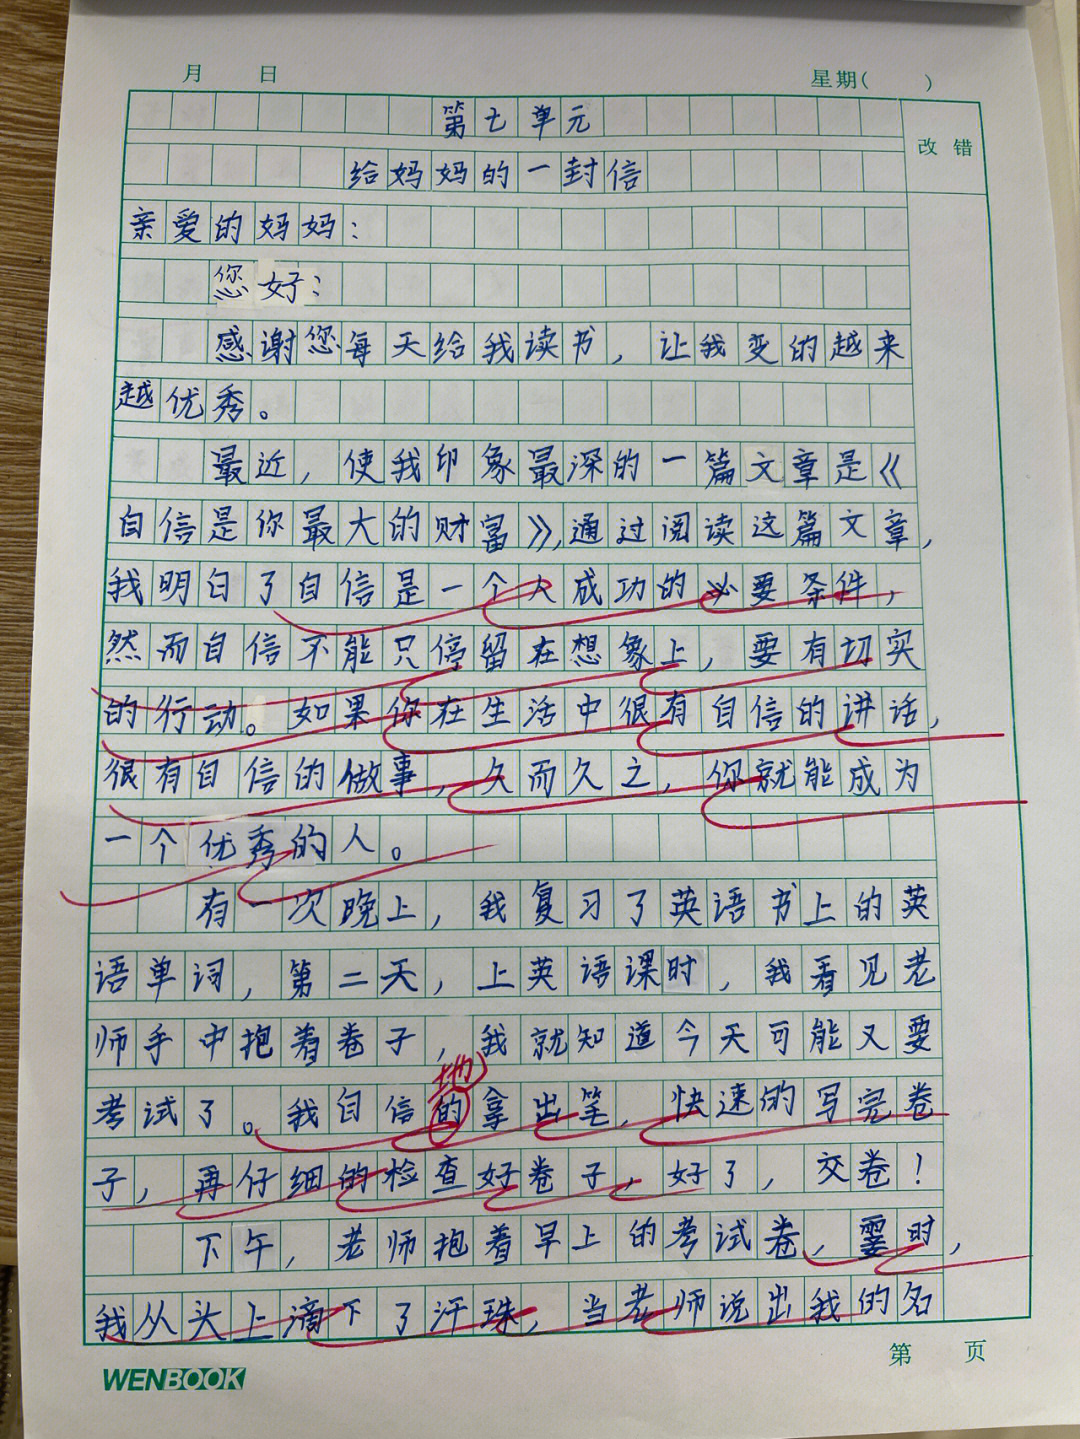 月 日 星期( )
第七单元
改错
给妈妈的一封信
亲爱的妈妈:
您好:
感谢您每天给我读书，让我变的越来
越优秀。
最近，使我印象最深的一篇文章是《
自信是你最大的财富》,通过阅读这篇文章，
我明白了自信是一个人成功的必要条件，
然而自信不能只停留在想象上，要有切实
的行动。如果你在生活中很有自信的讲话，
很有自信的做事，久而久之，你就能成为
一个优秀的人。
有一次晚上，我复习了英语书上的英
语单词，第二天，上英语课时，我看见老
师手中抱着卷子，我就知道今天可能又要
地
考试了。我自信的拿出笔，快速的写完卷
子，再仔细的检查好卷子，好了，交卷！
下午，老师抱着早上的考试卷，霎时，
我从头上滴下了汗珠，当老师说出我的名
第 页
WENBOOK